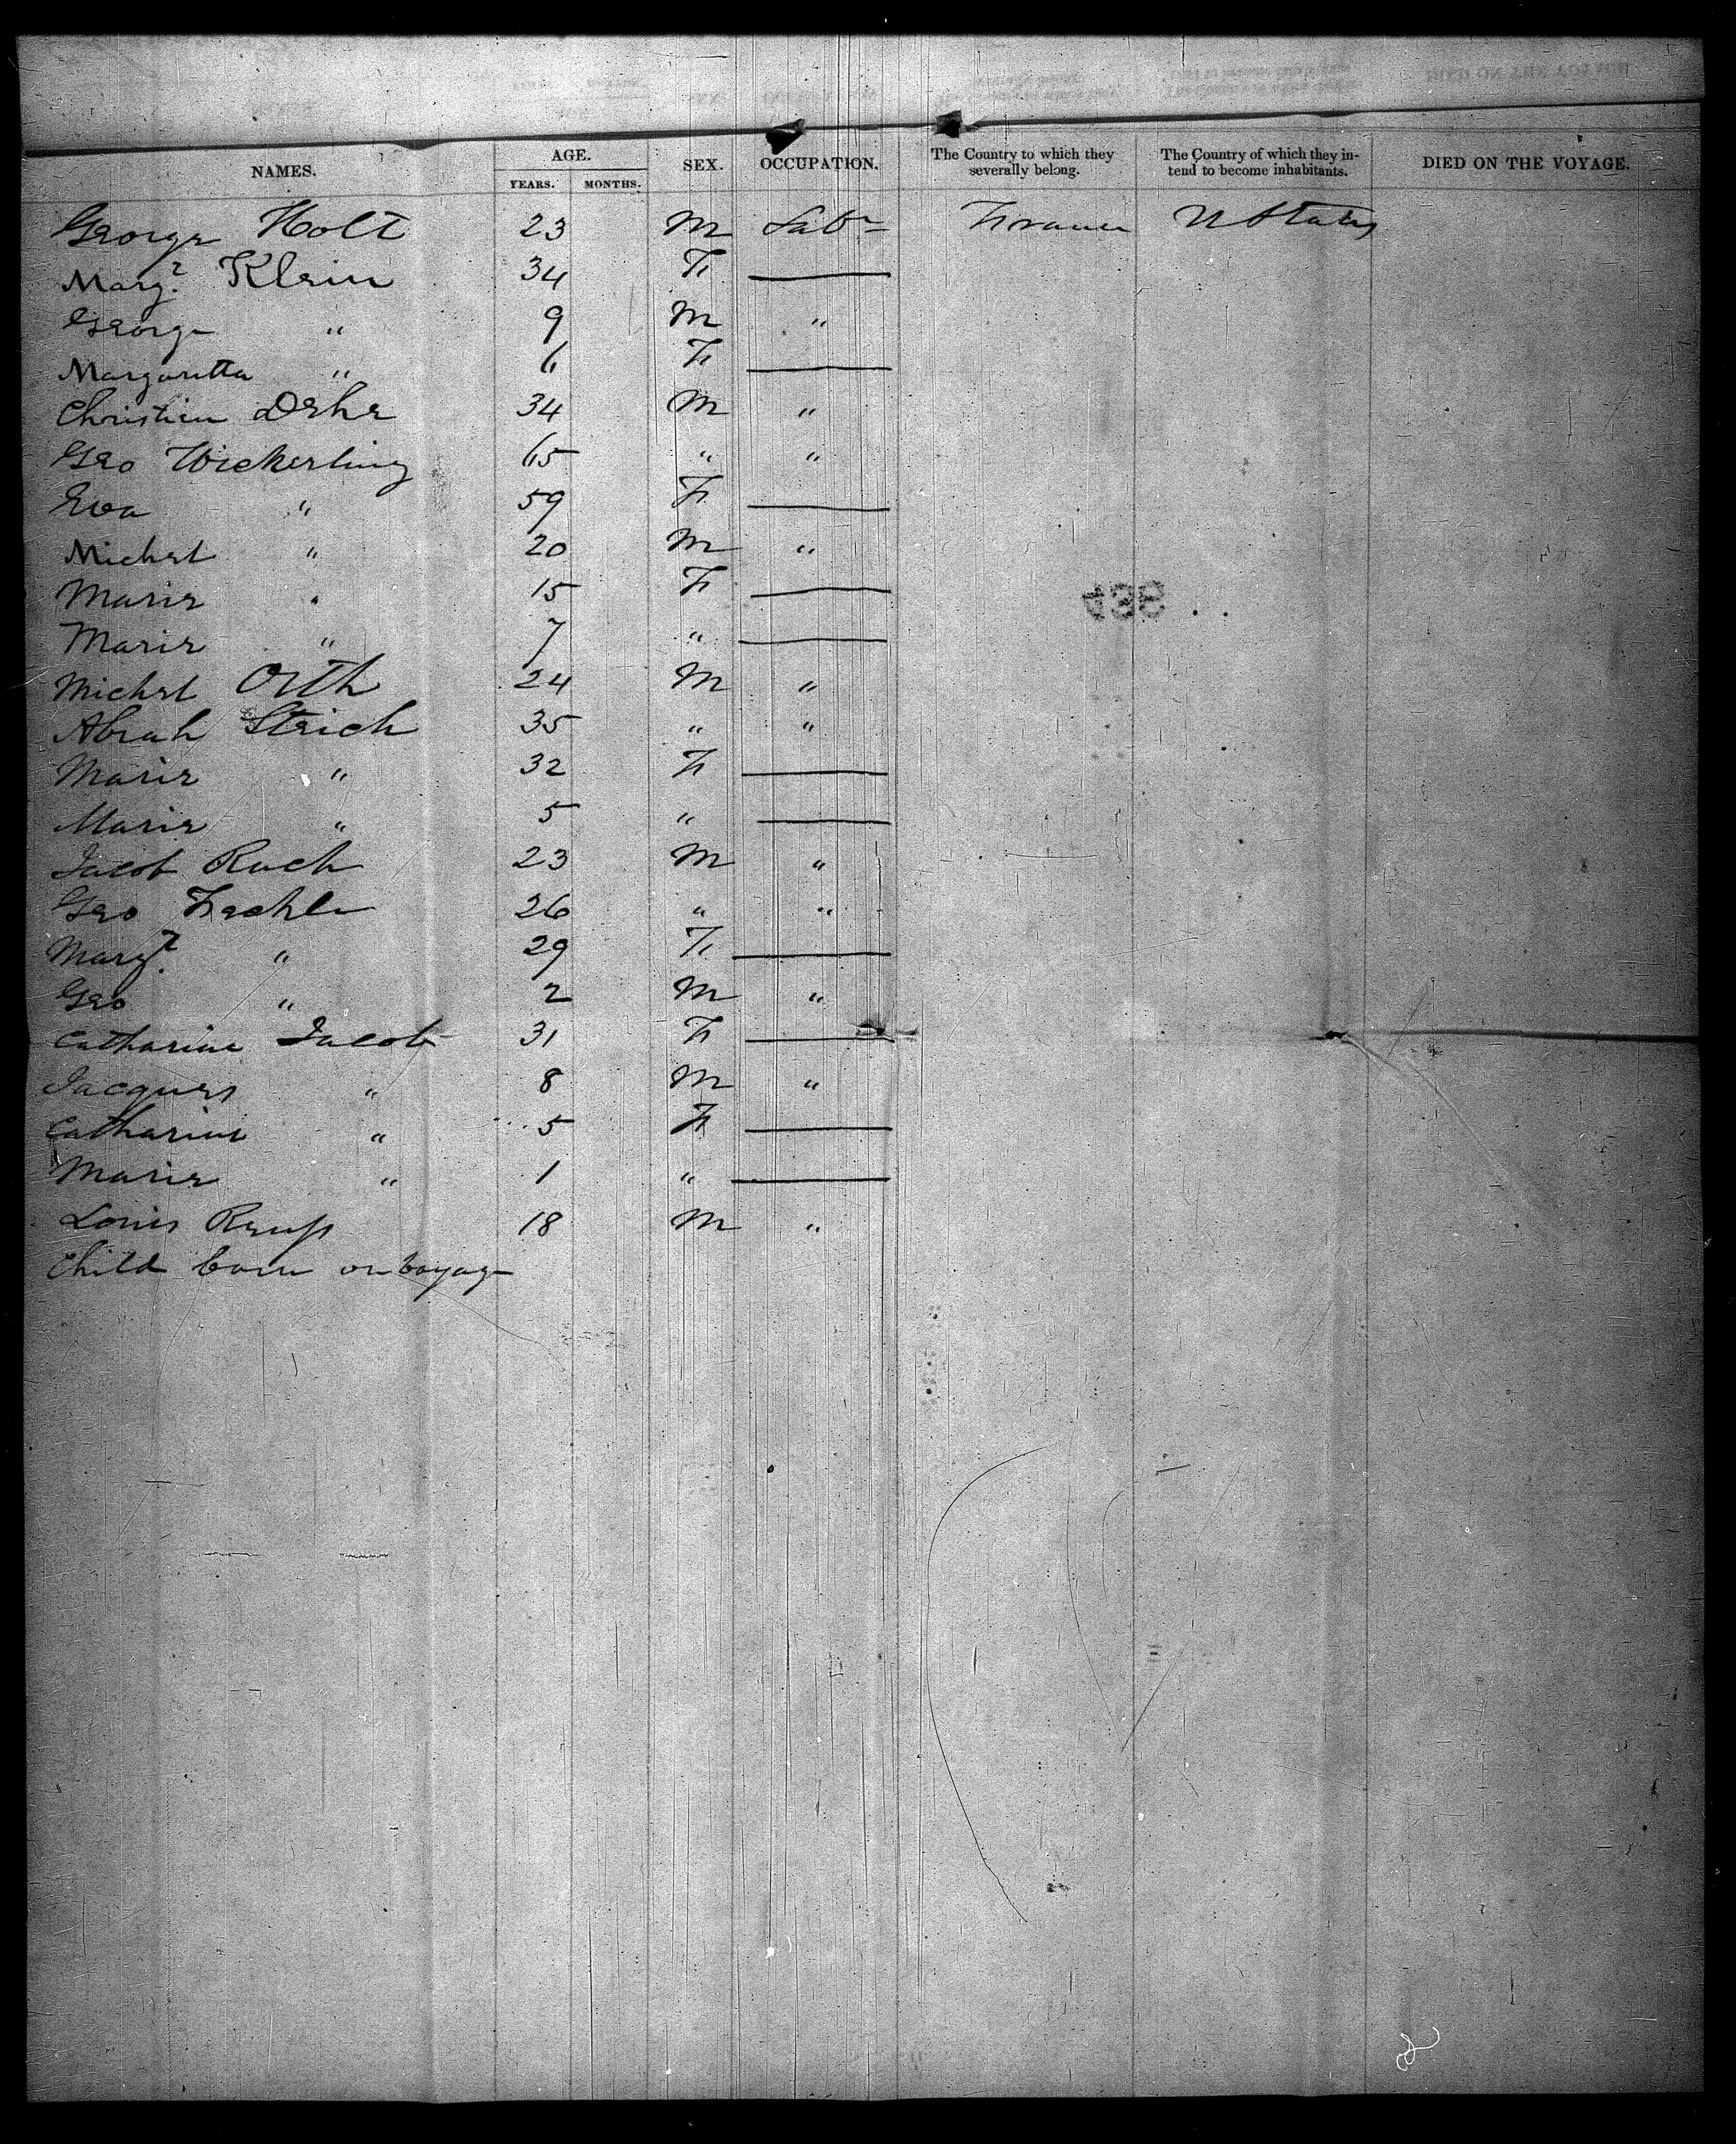 NAMES. AGE. SEX. OCCUPATION. The Country to which they severally belong. The Country of which they intend to become inhabitants. DIED ON THE VOYAGE.
YEARS. MONTHS.
George Holt 23 M Labr France U States
Margt Klein 34 F —
George " 9 M "
Margaretta " 6 F —
Christian Dehe 34 M "
Geo Wickerling 65 " "
Eva " 59 F —
Michel " 20 M "
Marie " 15 F —
Marie " 7 " —
Michel Orth 24 M "
Abrah Steich 35 " "
Marie " 32 F —
Marie " 5 " —
Jacob Ruch 23 M "
Geo 26 " "
Margt " 29 F —
Geo " 2 M "
Catharine Jacob 31 F —
Jacques " 8 M "
Catharine " 5 F —
Marie " 1 " —
Louis Reuss 18 M "
Child born on voyage